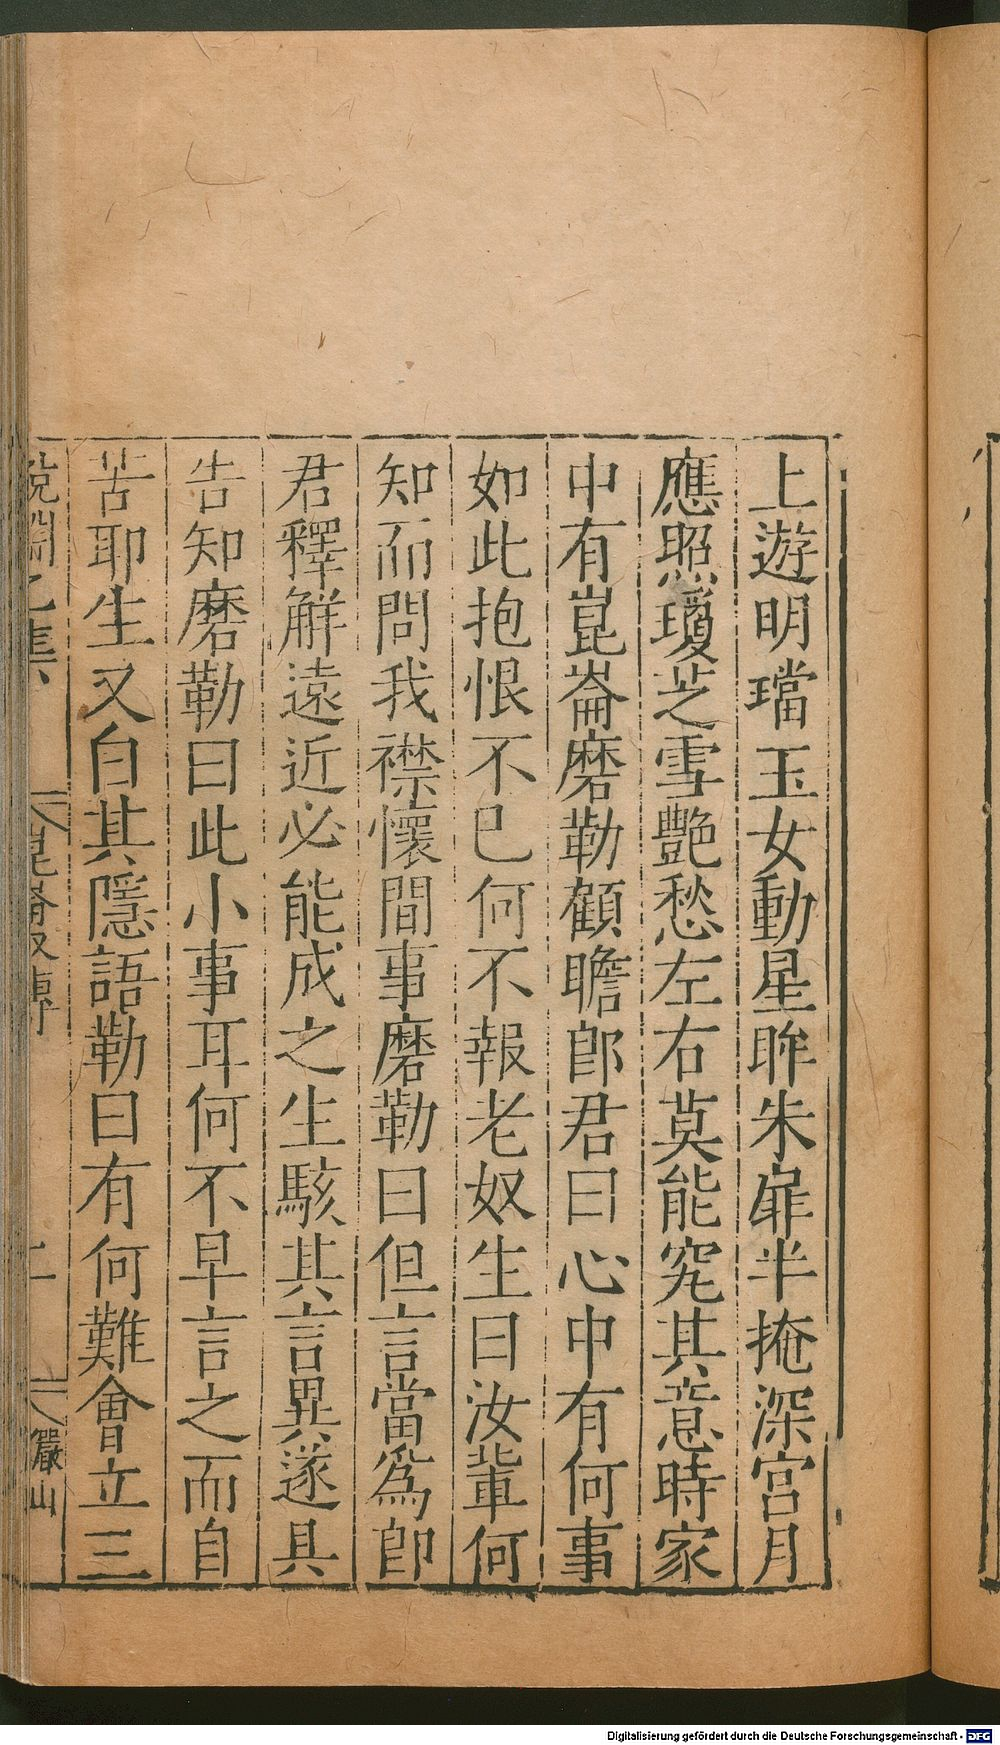 上遊明璫玉女動星眸朱扉半掩深宮月
應照瓊芝雪艷愁左右莫能究其意時家
中有崑崙磨勒顧瞻郎君曰心中有何事
如此抱恨不已何不報老奴生曰汝輩何
知而問我襟懷間事磨勒曰但言當爲郎
君釋解遠近必能成之生駭其言異遂具
告知磨勒曰此小事耳何不早言之而自
苦耶生又白其隱語勒曰有何難會立三
說淵乙集
崑崙奴傳
儼山
Digitalisierung gefördert durch die Deutsche Forschungsgemeinschaft - DFG